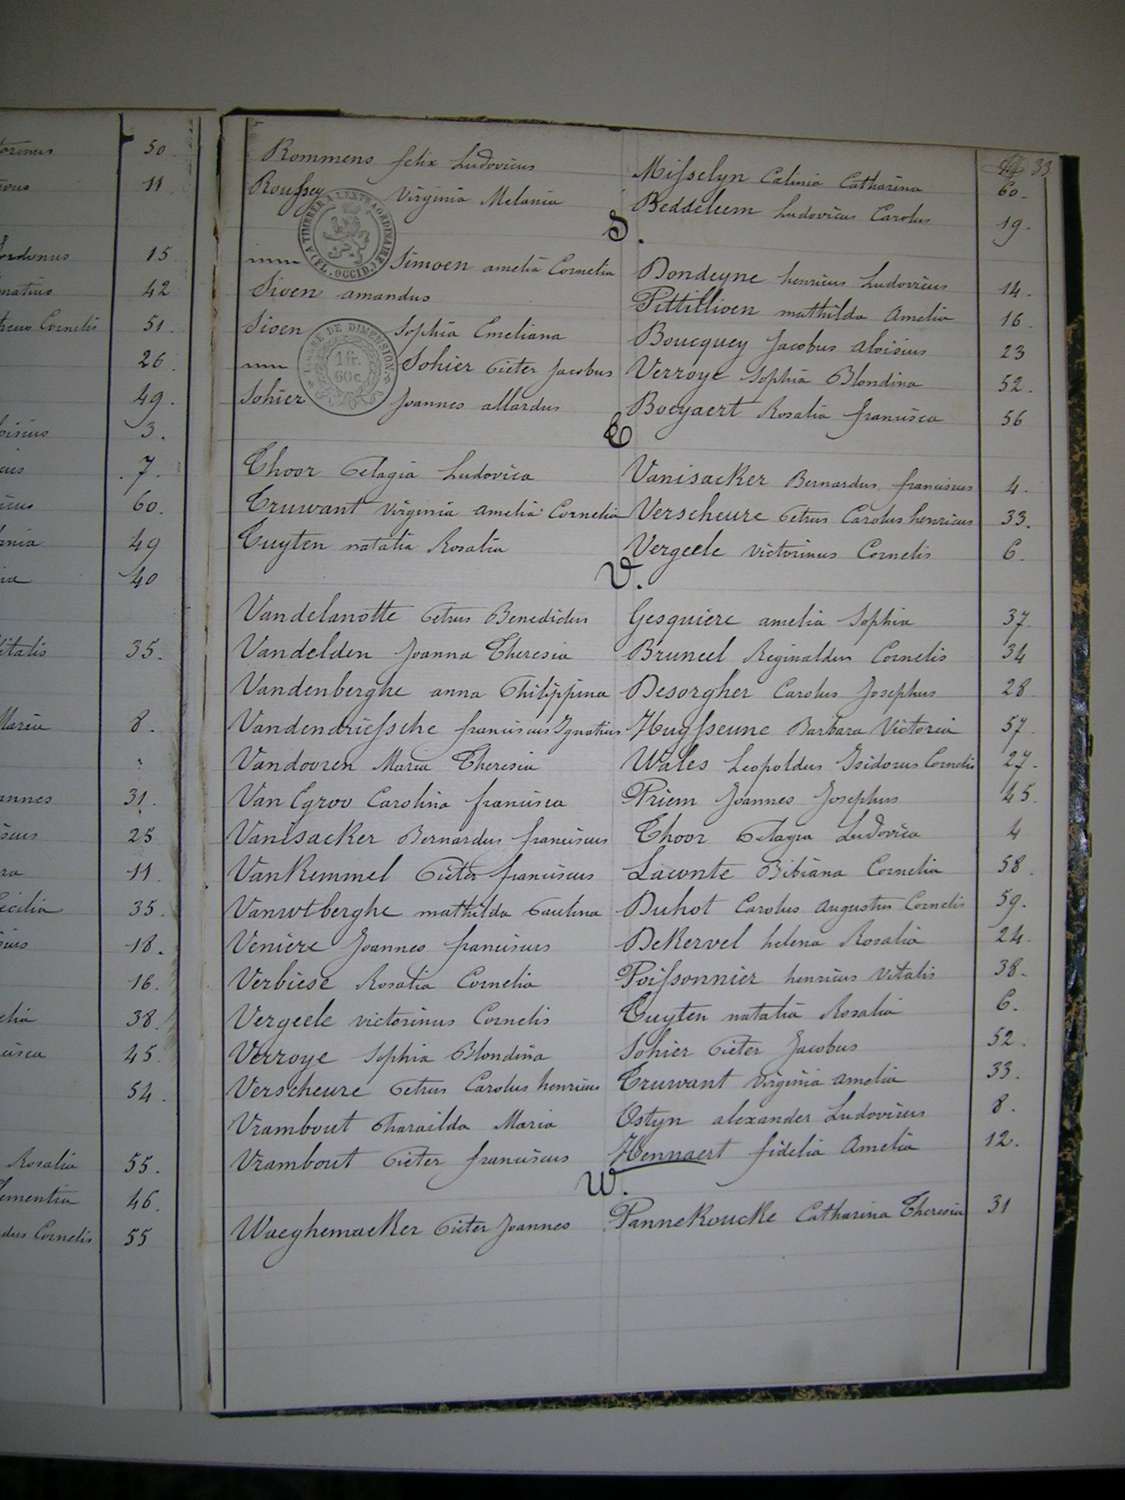 33
Rommens felix Ludovicus Misselyn Calinia Catharina 60.
Roussey Virginia Melania Beddeleem Ludovicus Carolus 19.
S.
Simoen amelia Cornelia Dondeyne henricus Ludovicus 14.
Sioen amandus Pittillioen mathilda Amelia 16.
Sioen Sophia Emeliana Boucquey Jacobus aloisius 23
Sohier Pieter Jacobus Verroye Sophia Blondina 52.
Sohier Joannes allardus Boeyaert Rosalia francisca 56
T
Thoor Pelagia Ludovica Vanisacker Bernardus franciscus 4.
Truwant virginia amelia Cornelia Verscheure Petrus Carolus henricus 33.
Tuyten natalia Rosalia Vergeele victorinus Cornelis 6.
V.
Vandelanotte Petrus Benedictus Gesquiere amelia Sophia 37
Vandelden Joanna Theresia Bruneel Reginaldus Cornelis 34
Vandenberghe anna Philippina Desorgher Carolus Josephus 28
Vandendriessche franciscus Ignatius Huysseune Barbara Victoria 57.
Vandooren Maria Theresia Wales Leopoldus Isidorus Cornelis 27.
Van Egroo Carolina francisca Priem Joannes Josephus 45.
Vanisacker Bernardus franciscus Thoor Pelagia Ludovica 4
VanKemmel Pieter franciscus Laconte Bibiana Cornelia 58.
Vanwtberghe mathilda Paulina Duhot Carolus Augustus Cornelis 59.
Veniere Joannes franciscus DeKervel helena Rosalia 24.
Verbiese Rosalia Cornelia Poissonnier henricus Vitalis 38.
Vergeele victorinus Cornelis Tuyten natalia Rosalia 6.
Verroye Sophia Blondina Sohier Pieter Jacobus 52.
Verscheure Petrus Carolus henricus Truwant Virginia amelia 33.
Vrambout Pharaïlda Maria Ostyn alexander Ludovicus 8.
Vrambout Pieter franciscus Hennaert fidelia Amelia 12.
W.
Waeghemacker Pieter Joannes PanneKoucke Catharina Theresia 31
50
11
15
42
Cornelis 51.
26
49.
3.
7.
60.
49
40
35.
Maria 8.
31.
25
11
35.
18.
16.
38.
45.
54.
Rosalia 55.
46.
Cornelis 55
(A TIMBRER A L'EXTRAORDINAIRE)
(FL. OCCID.)
DE DIMENSION
1 fr.
60 c.